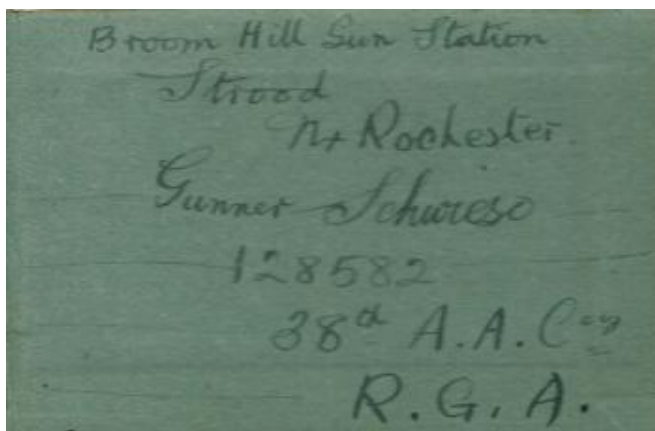 Broom Hill Gun Station
Strood
Nr Rochester.
Gunner Schwieso
128582
38d A.A. Coy
R.G.A.